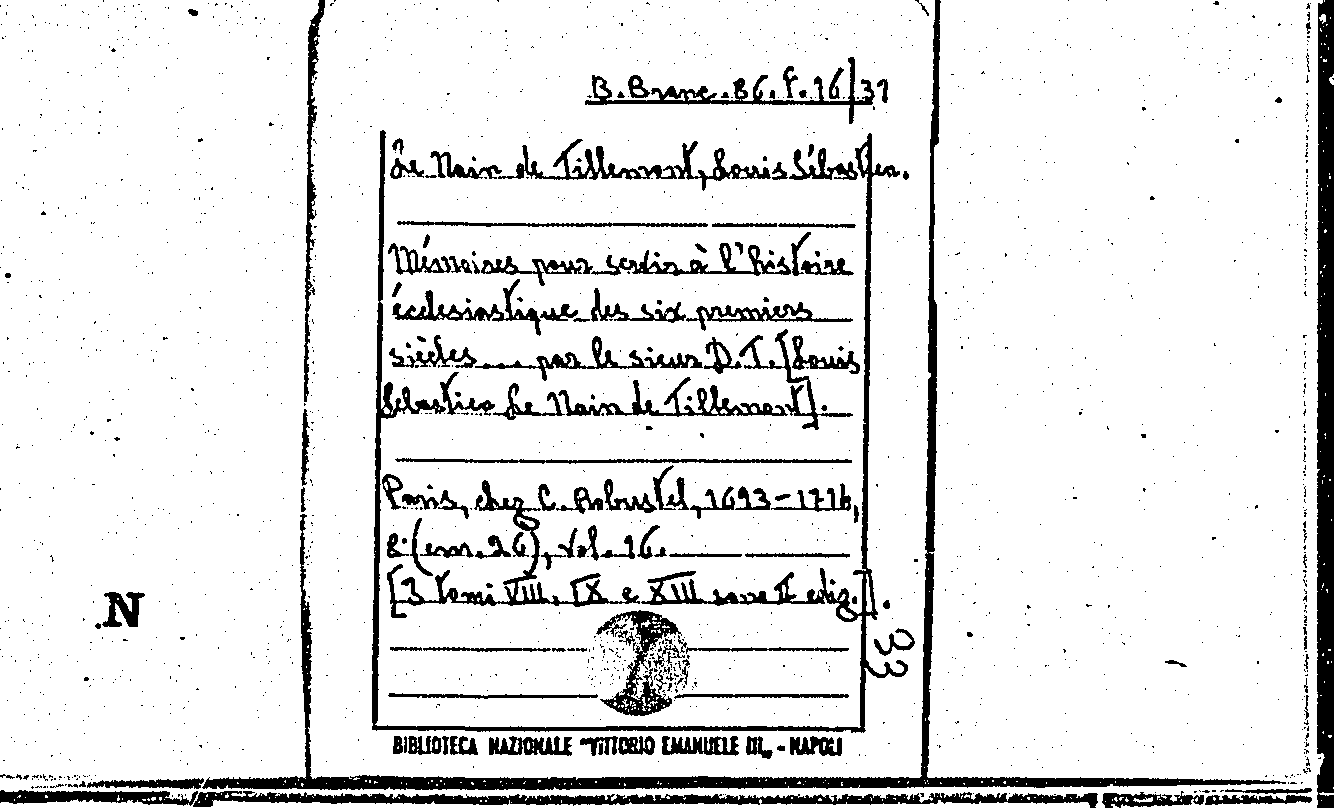 B. Branc. 86. F. 16/31
Le Nain de Tillemont, Louis Sébastien.
Mémoires pour servir à l'histoire
écclesiastique des six premiers
siècles ... par le sieur D. T. [Louis
Sebastien Le Nain de Tillemont].
Paris, chez C. Robustel, 1693-1716,
8° (cm. 26), vol. 16.
[I tomi VIII, IX e XIII sono II ediz.].
33
.N
BIBLIOTECA NAZIONALE "VITTORIO EMANUELE III„ - NAPOLI